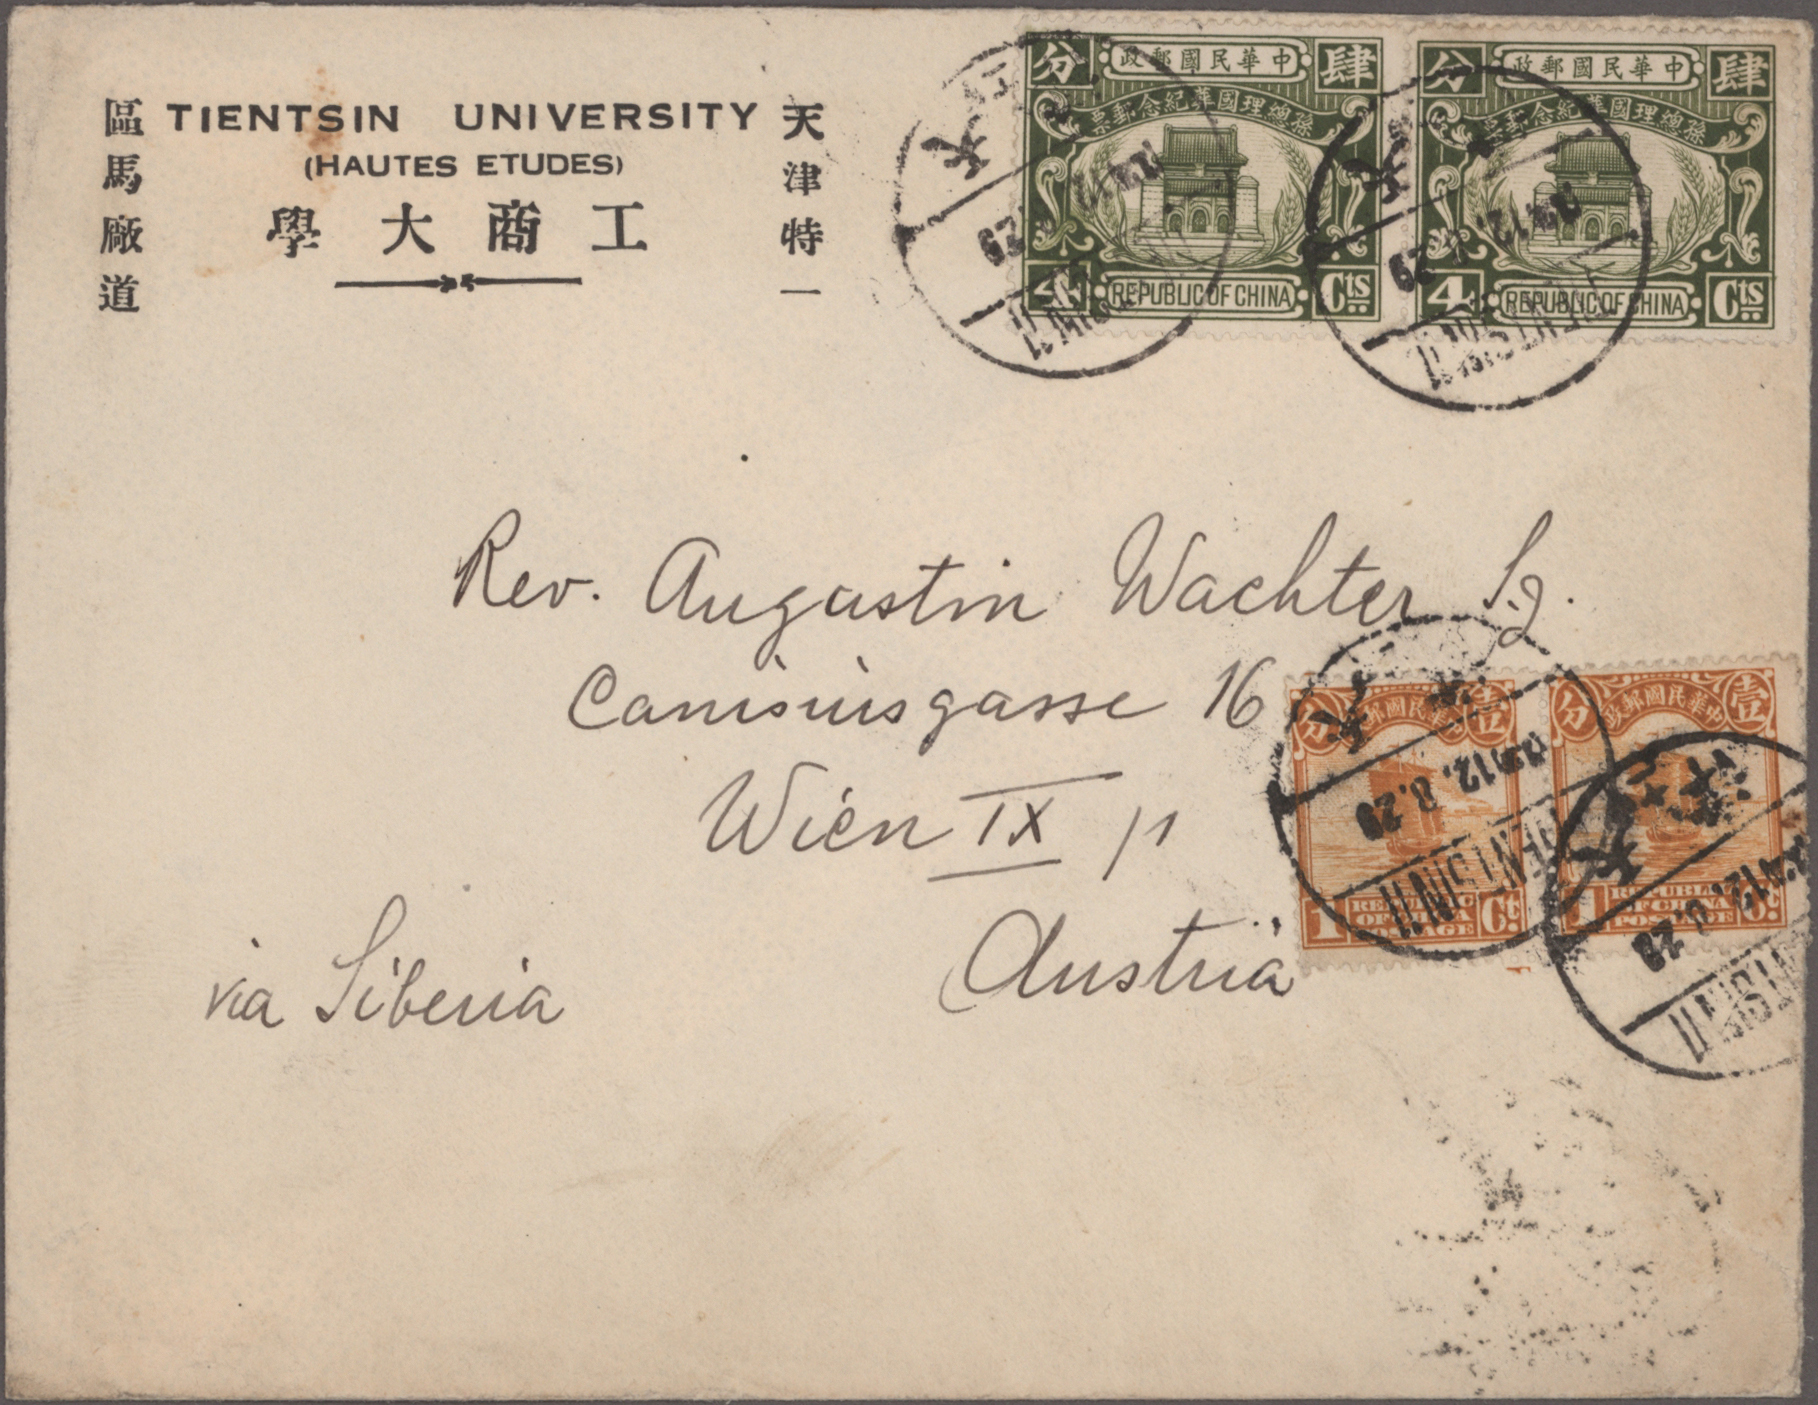 TIENTSIN UNIVERSITY
(HAUTES ETUDES)
學大商工
天津特一
區馬廠道
政郵國民華中
分 肆
票郵念紀葬國理總孫
4 REPUBLIC OF CHINA Cts
政郵國民華中
分 肆
票郵念紀葬國理總孫
4 REPUBLIC OF CHINA Cts
天
29
TIENTSIN 11
天
12
29
TIENTSIN 11
Rev. Augustin Wachter S.J.
Canisiusgasse 16
Wien IX /1
Austria
via Siberia
分 政郵國民華中 壹
1 REPUBLIC OF CHINA POSTAGE Ct
分 政郵國民華中 壹
1 REPUBLIC OF CHINA POSTAGE Ct
天津
12.8.29
TIENTSIN 11
天津
12.
29
TIENTSIN 11